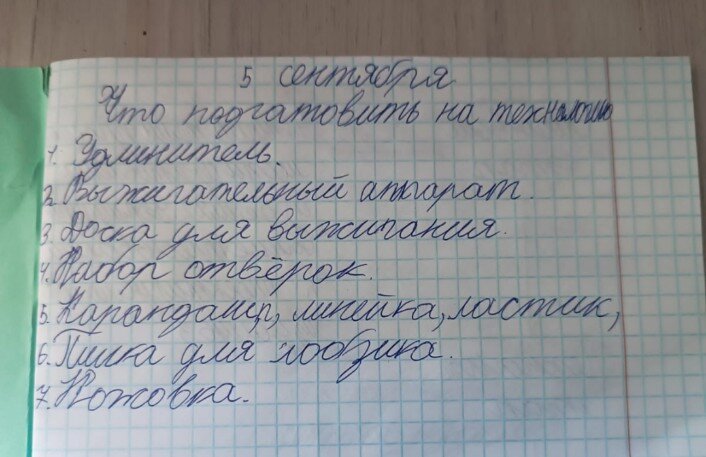 5 сентября
Что подготовить на технологию
1. Удлинитель.
2. Выжигательный аппарат.
3. Доска для выжигания.
4. Набор отвёрок.
5. Карандашр, линейка, ластик,
6. Пилка для лобзика.
7. Ножовка.